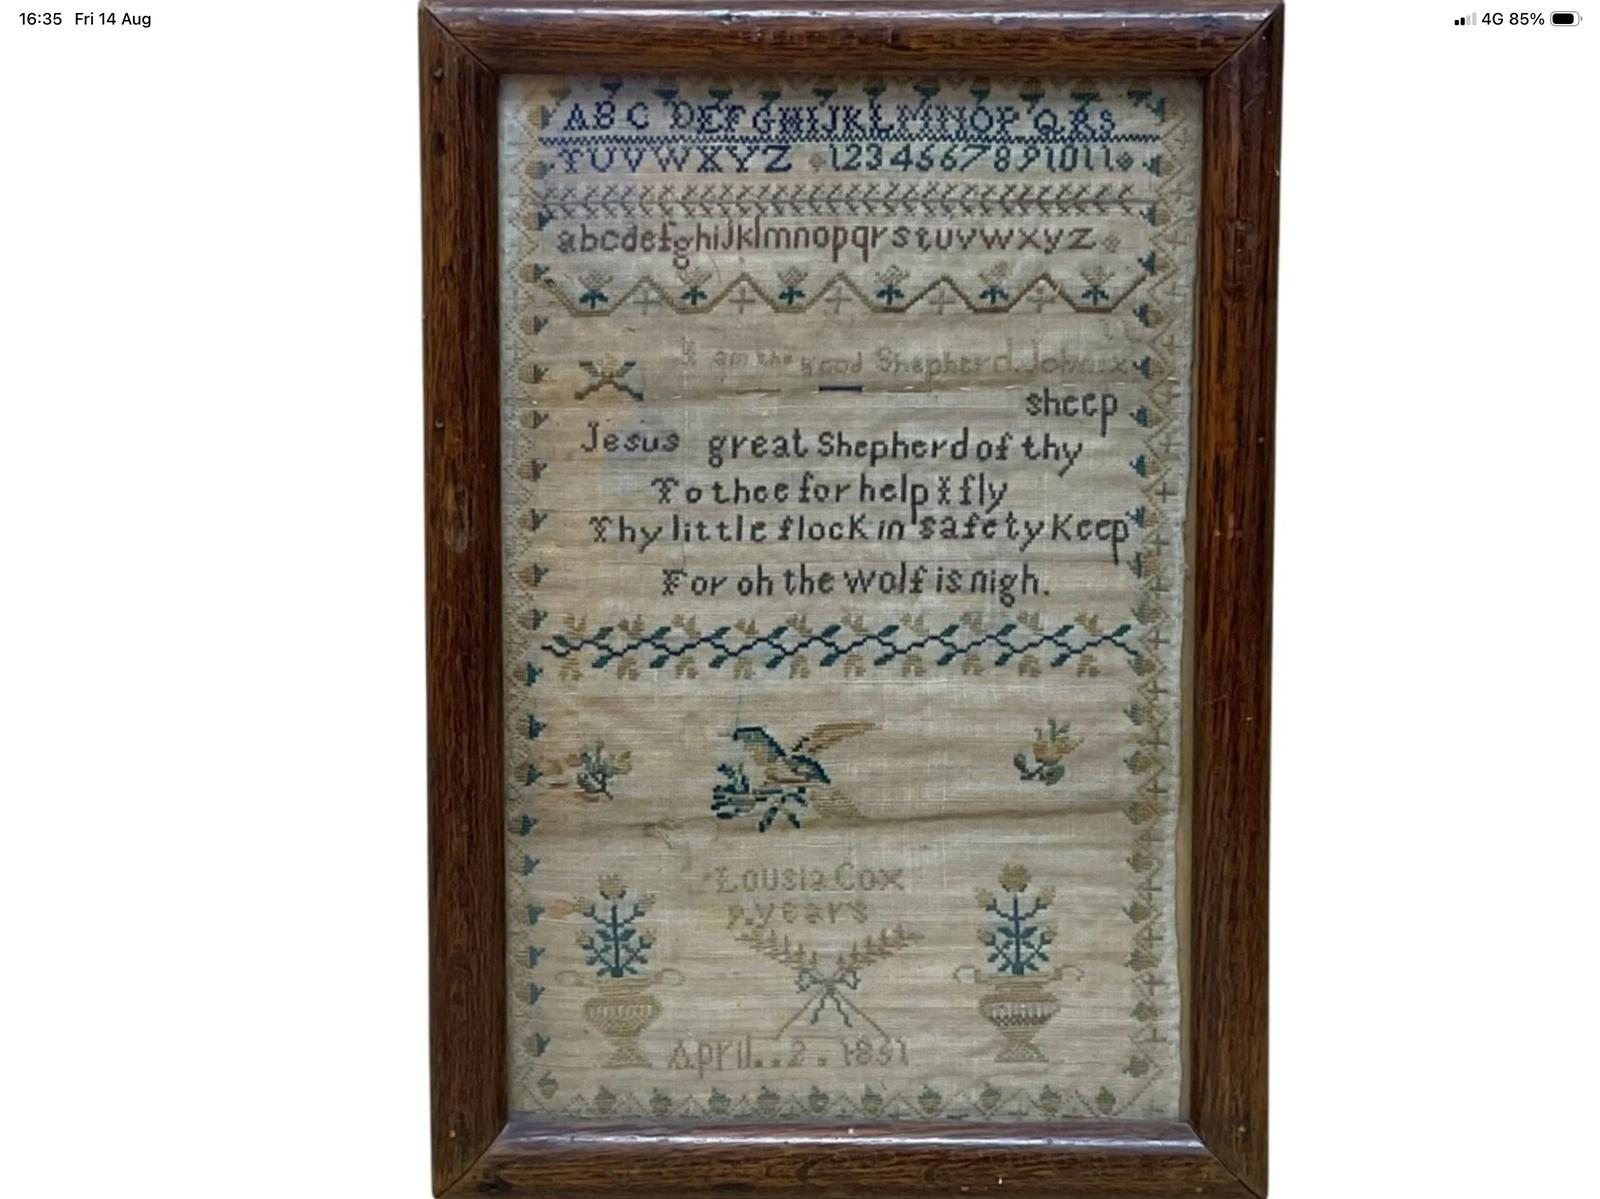 16:35 Fri 14 Aug
4G 85%
ABCDEFGHIJKLMNOPQRS
TUVWXYZ 1234667891011
abcdefghijklmnopqrstuvwxyz
I am the good Shepherd. John x
sheep
Jesus great Shepherd of thy
To thee for help I fly
Thy little flock in safety Keep
For oh the wolf is nigh.
Lousia Cox
9. years
April..2.1831